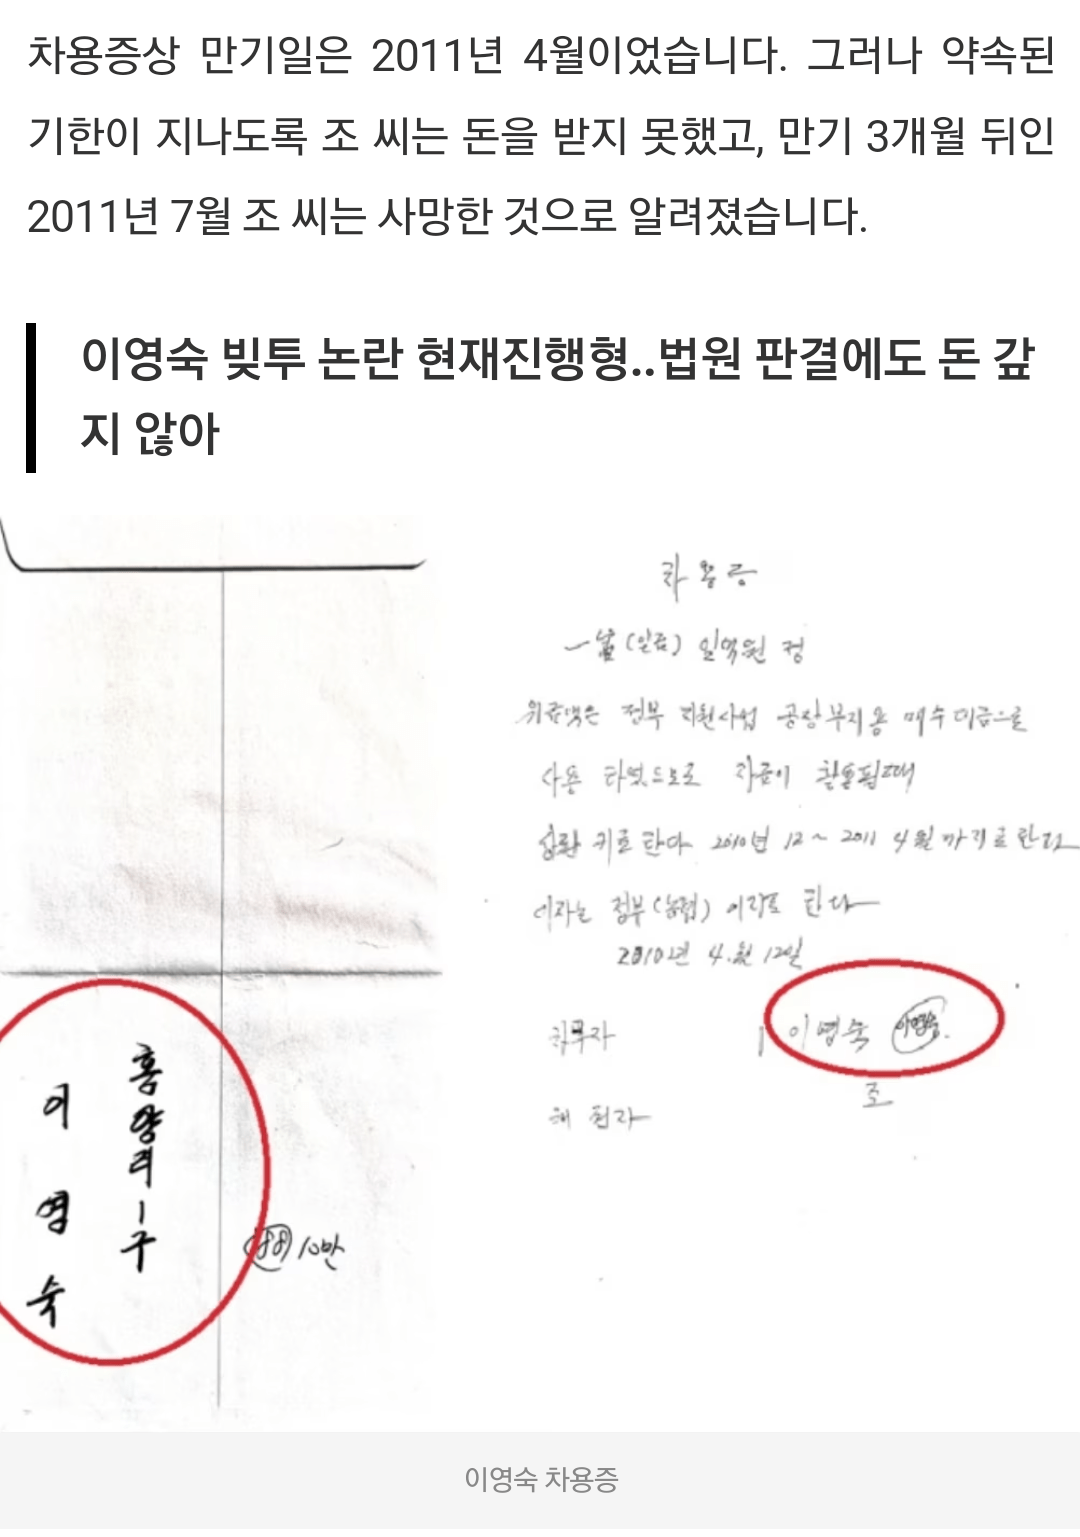 차용증상 만기일은 2011년 4월이었습니다. 그러나 약속된
기한이 지나도록 조 씨는 돈을 받지 못했고, 만기 3개월 뒤인
2011년 7월 조 씨는 사망한 것으로 알려졌습니다.
이영숙 빚투 논란 현재진행형..법원 판결에도 돈 갚
지 않아
홍양리-구
이영숙
10만
차용증
일억원 정
위 금액은 정부 지원사업 공장부지용 매수 대금으로
사용
상환 키로 한다 2010년 12 ~ 2011 4월까지로 한다
이자는 정부(농협) 이자로 한다
2010년 4.월 12일
채무자 이영숙 이영숙
조
채권자
이영숙 차용증